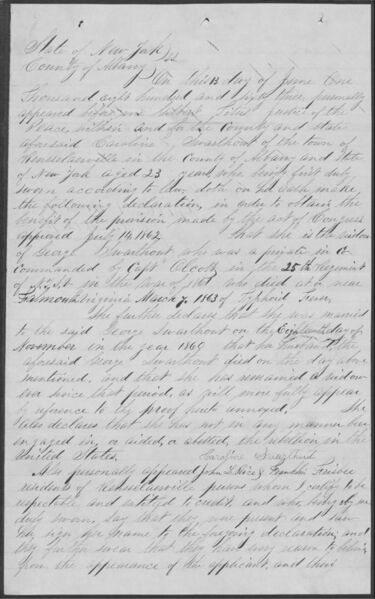 State of New York } ss
County of Albany
On this 13 day of June One
Thousand eight hundred and sixty three personally
appeared before me Justice of the
Peace within and for the County and State
aforesaid Caroline Swarthout of the town of
Rensselaerville in the County of Albany and State
of New York aged 23 years who being first duly
sworn according to law, doth on her oath make
the following declaration, in order to obtain the
benefit of the provision made by the act of Congress
approved July 14, 1862 that she is the widow
of George Swarthout who was a private in Co
commanded by Capt Olcott in the 25th Regiment
of in the war of 1861 who died at or near
Falmouth Virginia March 7, 1863 of Typhoid Fever
She further declares that she was married
to the said George Swarthout on the day of
November in the year 1860 that her husband the
aforesaid George Swarthout died on the day above
mentioned, and that she has remained a widow
ever since that period, as will more fully appear
by reference to the proof hereto annexed. She
also declares that she has not in any manner been
engaged in, or aided, or abetted, the rebellion in the
United States. Caroline Swarthout
Also personally appeared John D. Rice & Franklin Frisbee
residents of Rensselaerville persons whom I certify to be
respectable and entitled to credit, and who, being by me
duly sworn, say that they were present and saw
her sign her name to the foregoing declaration; and
they further swear that they have every reason to believe
from the appearance of the applicant, and their